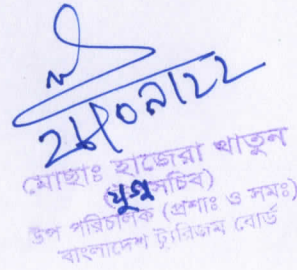 ২৮/০৯/২২
মোছাঃ হাজেরা খাতুন
(যুগ্মসচিব)
উপ পরিচালক (প্রশাঃ ও সমঃ)
বাংলাদেশ ট্যুরিজম বোর্ড